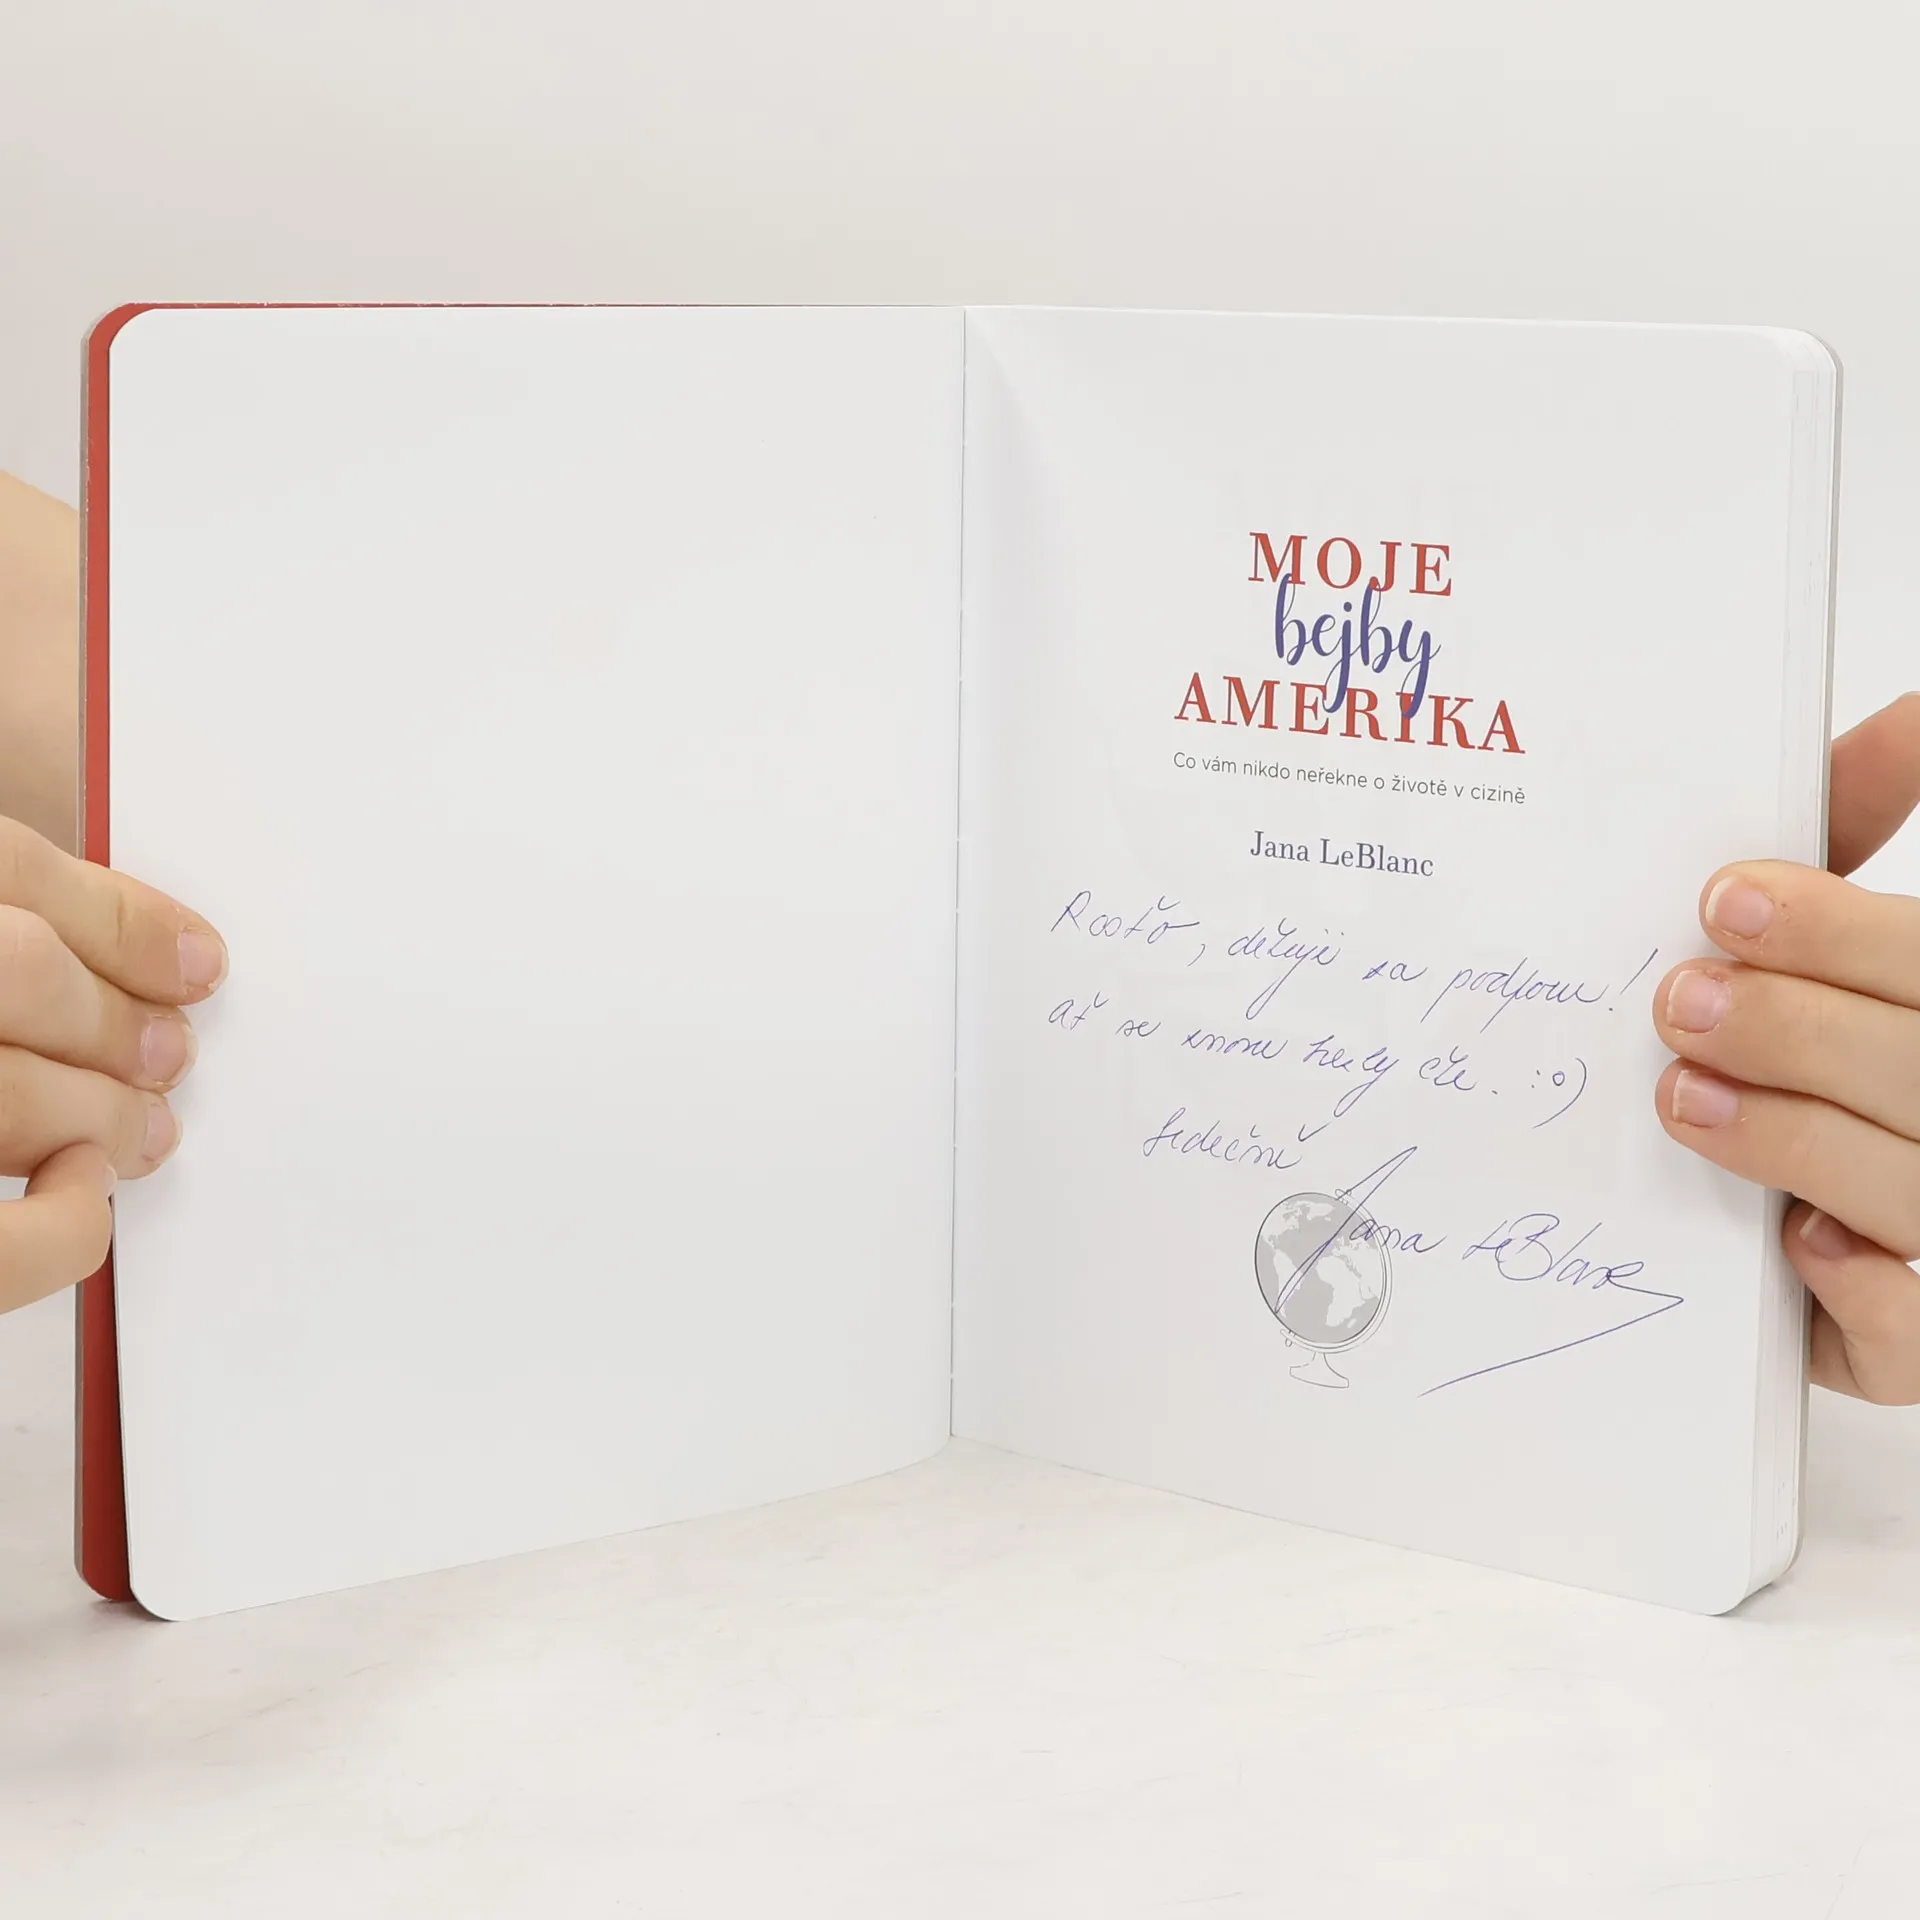 MOJE
bejby
AMERIKA
Co vám nikdo neřekne o životě v cizině
Jana LeBlanc
Rosťo, děkuji za podporu!
Ať se znovu hezky čte. :o)
Srdečně
Jana LeBlanc